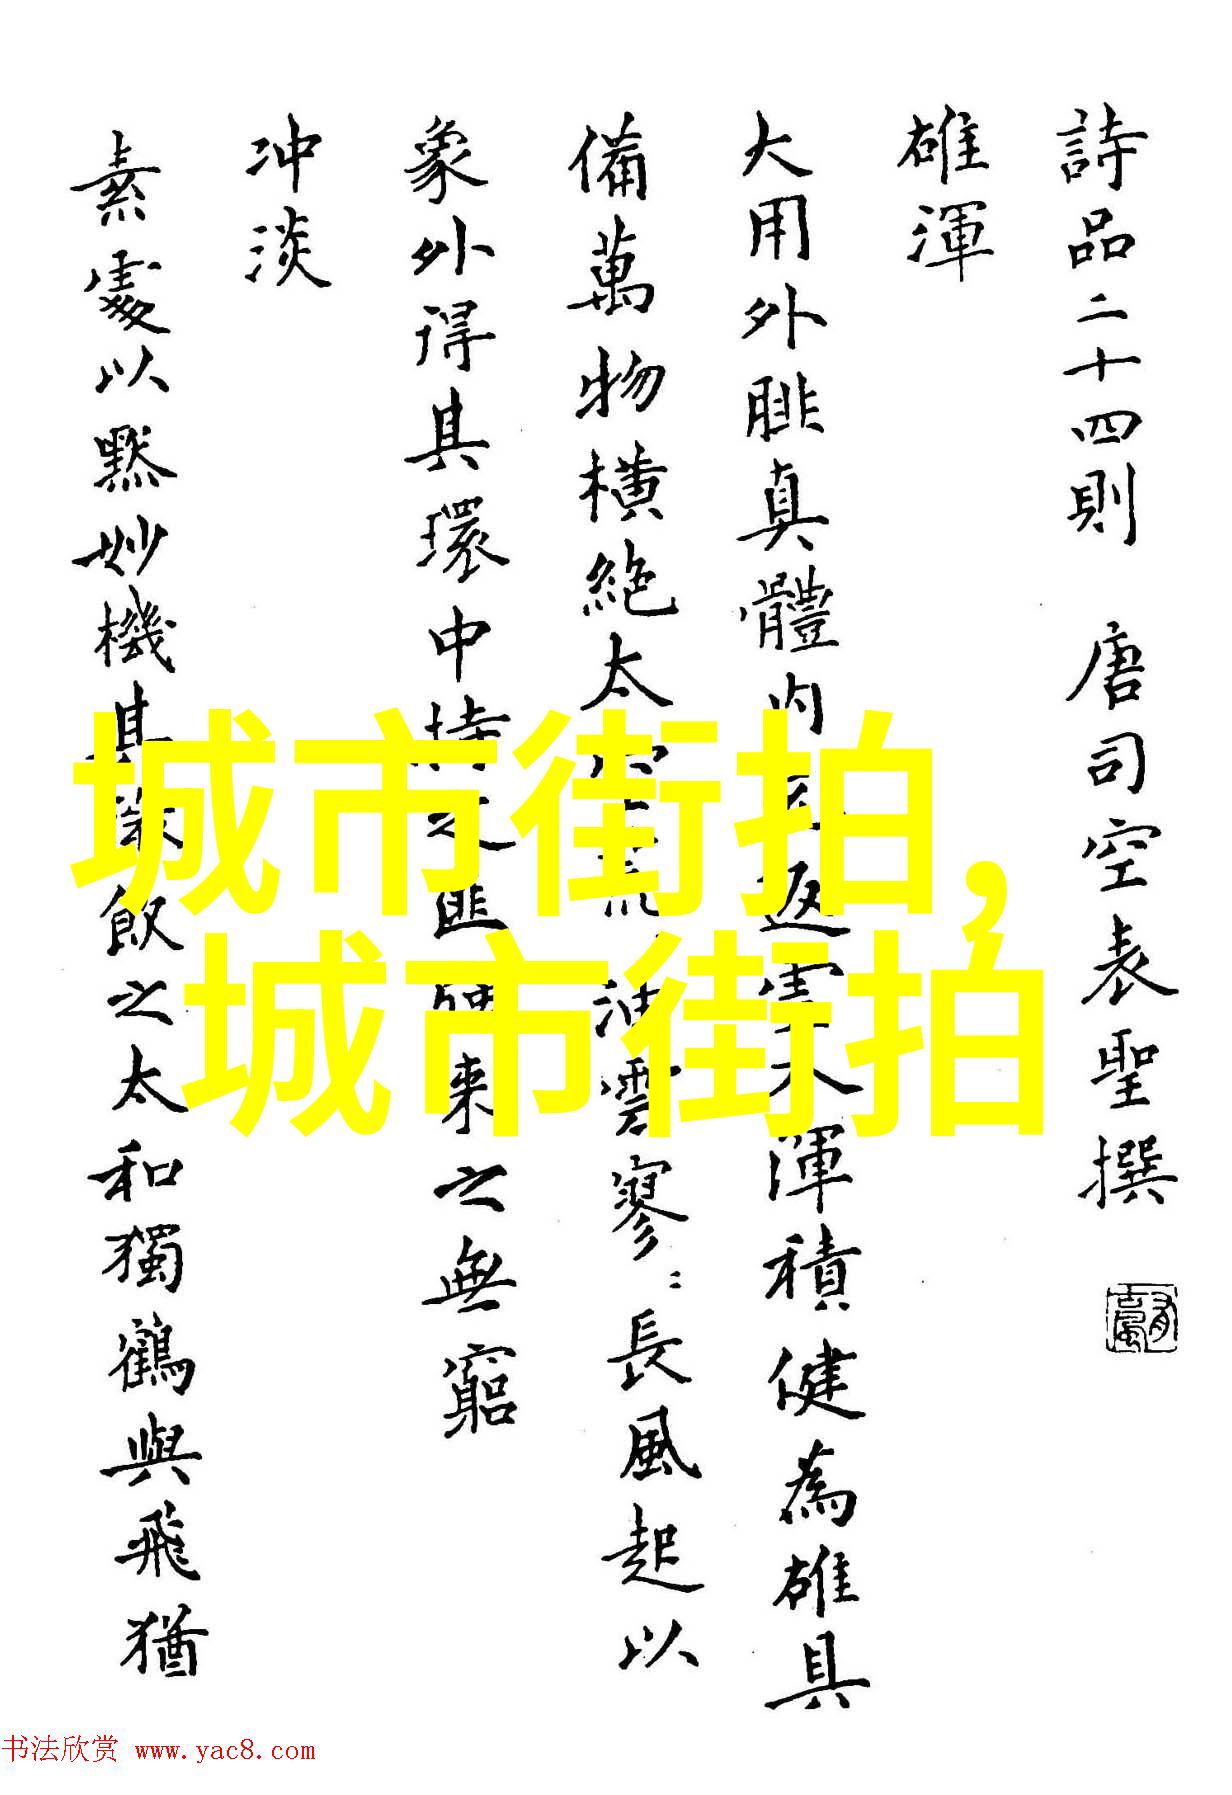 詩品二十四則 唐司空表聖撰
雄渾
大用外腓真體内充返虛入渾積健為雄具
備萬物橫絶太空荒荒油雲寥〻長風起以
象外得其環中持之匪強來之無窮
冲淡
素處以默妙機其微飲之太和獨鶴與飛猶
城市街拍,
城市街拍
书法欣赏 www.yac8.com